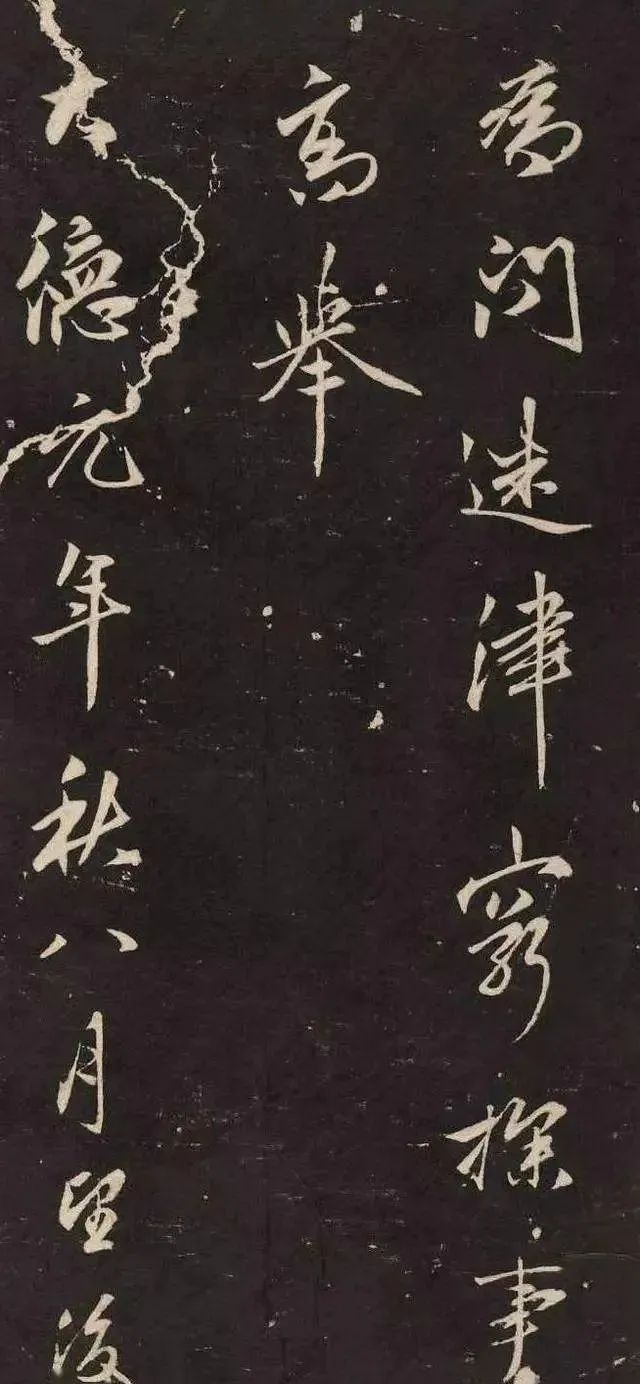 為問迷津窮探事
高舉
大德元年秋八月望後